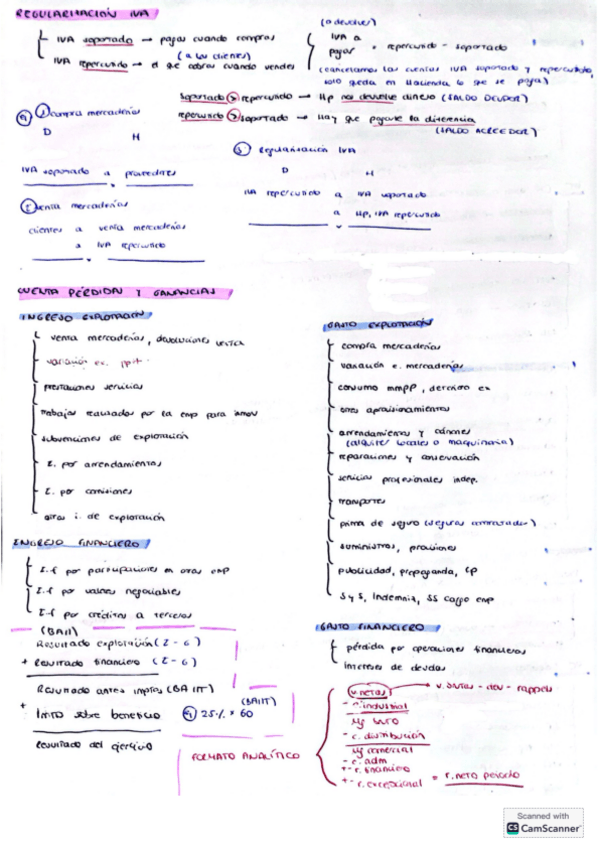 REGULARIZACIÓN IVA
IVA soportado → pagas cuando compras
(a los clientes)
IVA repercutido → el que cobras cuando vendes
(o devolver)
IVA a pagar = repercutido - soportado
(cancelamos las cuentas IVA soportado y repercutido, solo queda en Hacienda lo que se paga)
soportado > repercutido → Hp nos devuelve dinero (SALDO DEUDOR)
repercutido > soportado → Hay que pagarle la diferencia
(SALDO ACREEDOR)
compra mercaderías
D H
IVA soportado a proveedores
venta mercaderías
clientes a venta mercaderías
a IVA repercutido
Regularización IVA
D H
IVA repercutido a IVA soportado
a Hp, IVA repercutido
CUENTA PÉRDIDAS Y GANANCIAS
INGRESO EXPLOTACIÓN
venta mercaderías, devoluciones venta
variación ex.
prestaciones servicios
trabajos realizados por la emp para inmov
subvenciones de explotación
I. por arrendamientos
I. por comisiones
otros i. de explotación
INGRESO FINANCIERO
I.f por participaciones en otras emp
I.f por valores negociables
I.f por créditos a terceros
(BAII)
Resultado explotación (I - G)
+ Resultado financiero (I - G)
Resultado antes imptos (BAIT)
+
Imto sobre beneficio
(BAIT)
25% * 60
resultado del ejercicio
FORMATO ANALÍTICO
GASTO EXPLOTACIÓN
compra mercaderías
variación e. mercaderías
consumo mmpp, deterioro ex
otros aprovisionamientos
arrendamientos y cánones
(alquiler locales o maquinaria)
reparaciones y conservación
servicios profesionales indep.
transportes
prima de seguro (seguros contratados)
suministros, provisiones
publicidad, propaganda, rp
S y S, Indemniz, SS cargo emp
GASTO FINANCIERO
pérdida por operaciones financieras
intereses de deudas
v. netas → v. brutas - dev - rappels
- c. industrial
Mg bruto
- c. distribución
Mg comercial
- c. adm
+- r. financiero
+- r. excepcional = r. neto periodo
Scanned with
CS CamScanner